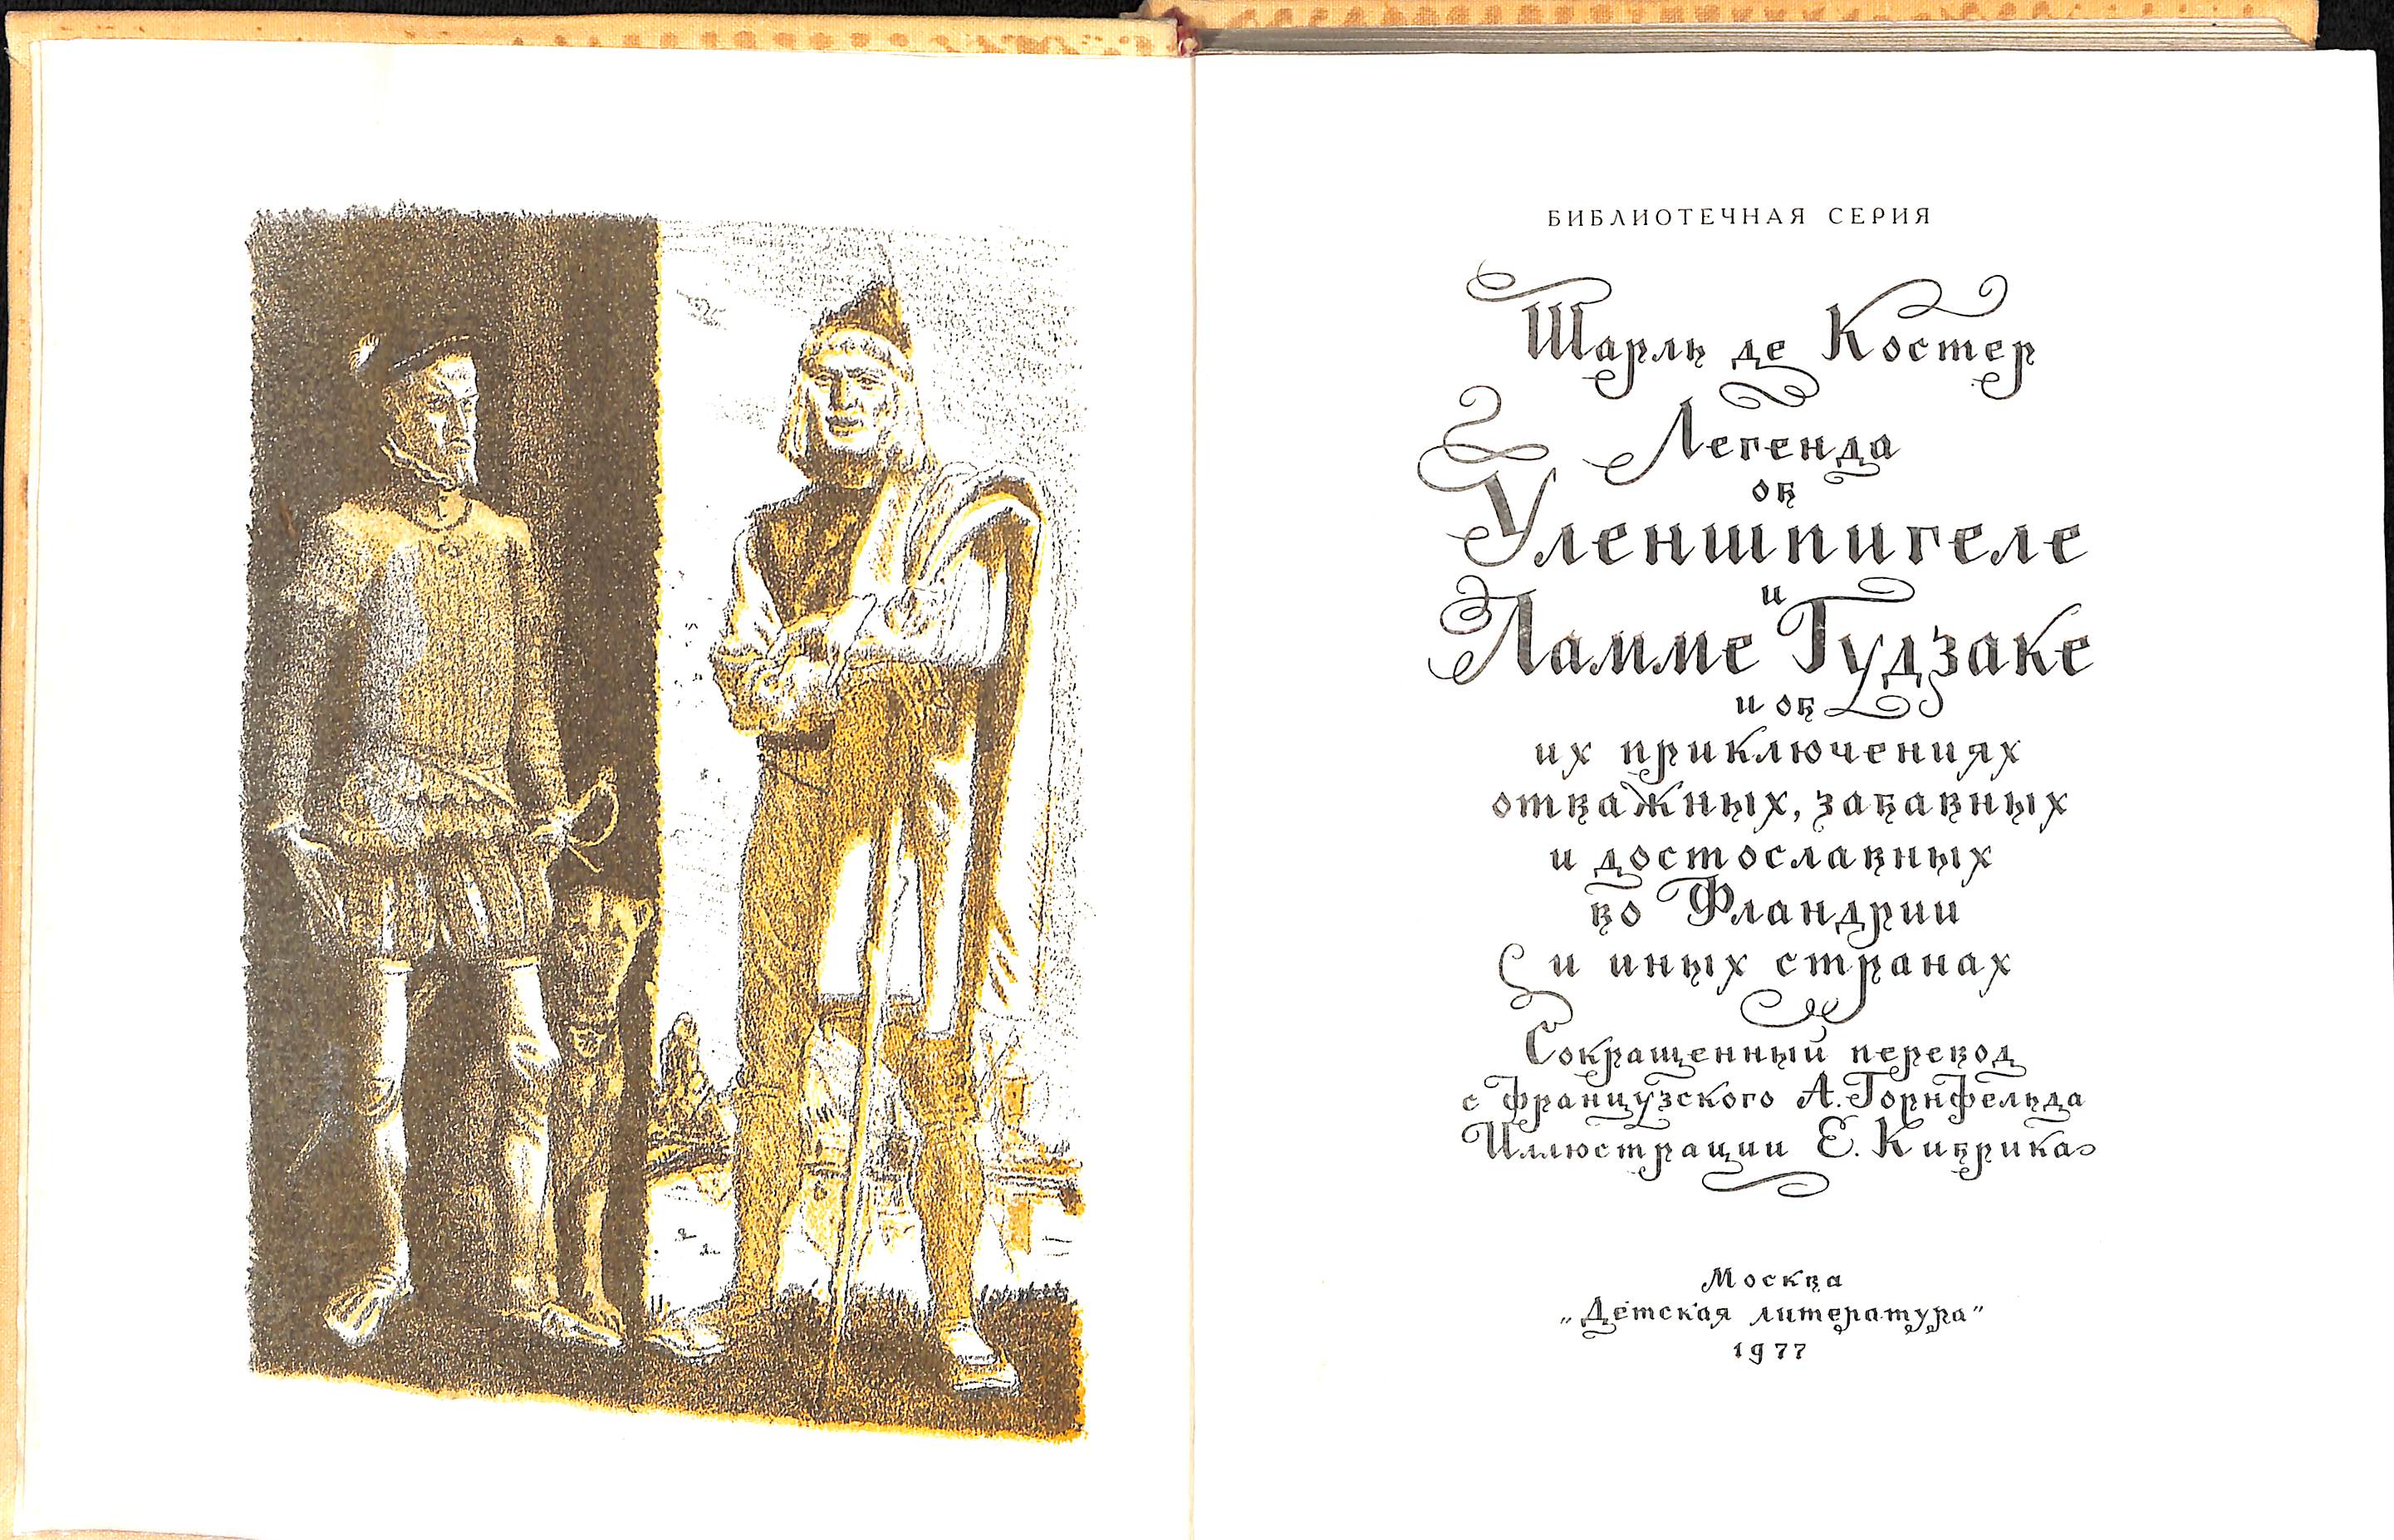 БИБЛИОТЕЧНАЯ СЕРИЯ
Шарль де Костер
Легенда
об
Уленшпигеле
и
Ламме Гудзаке
и об
их приключениях
отважных, забавных
и достославных
во Фландрии
и иных странах
Сокращенный перевод
с французского А. Горнфельда
Иллюстрации Е. Кибрика
Москва
„Детская литература"
1977